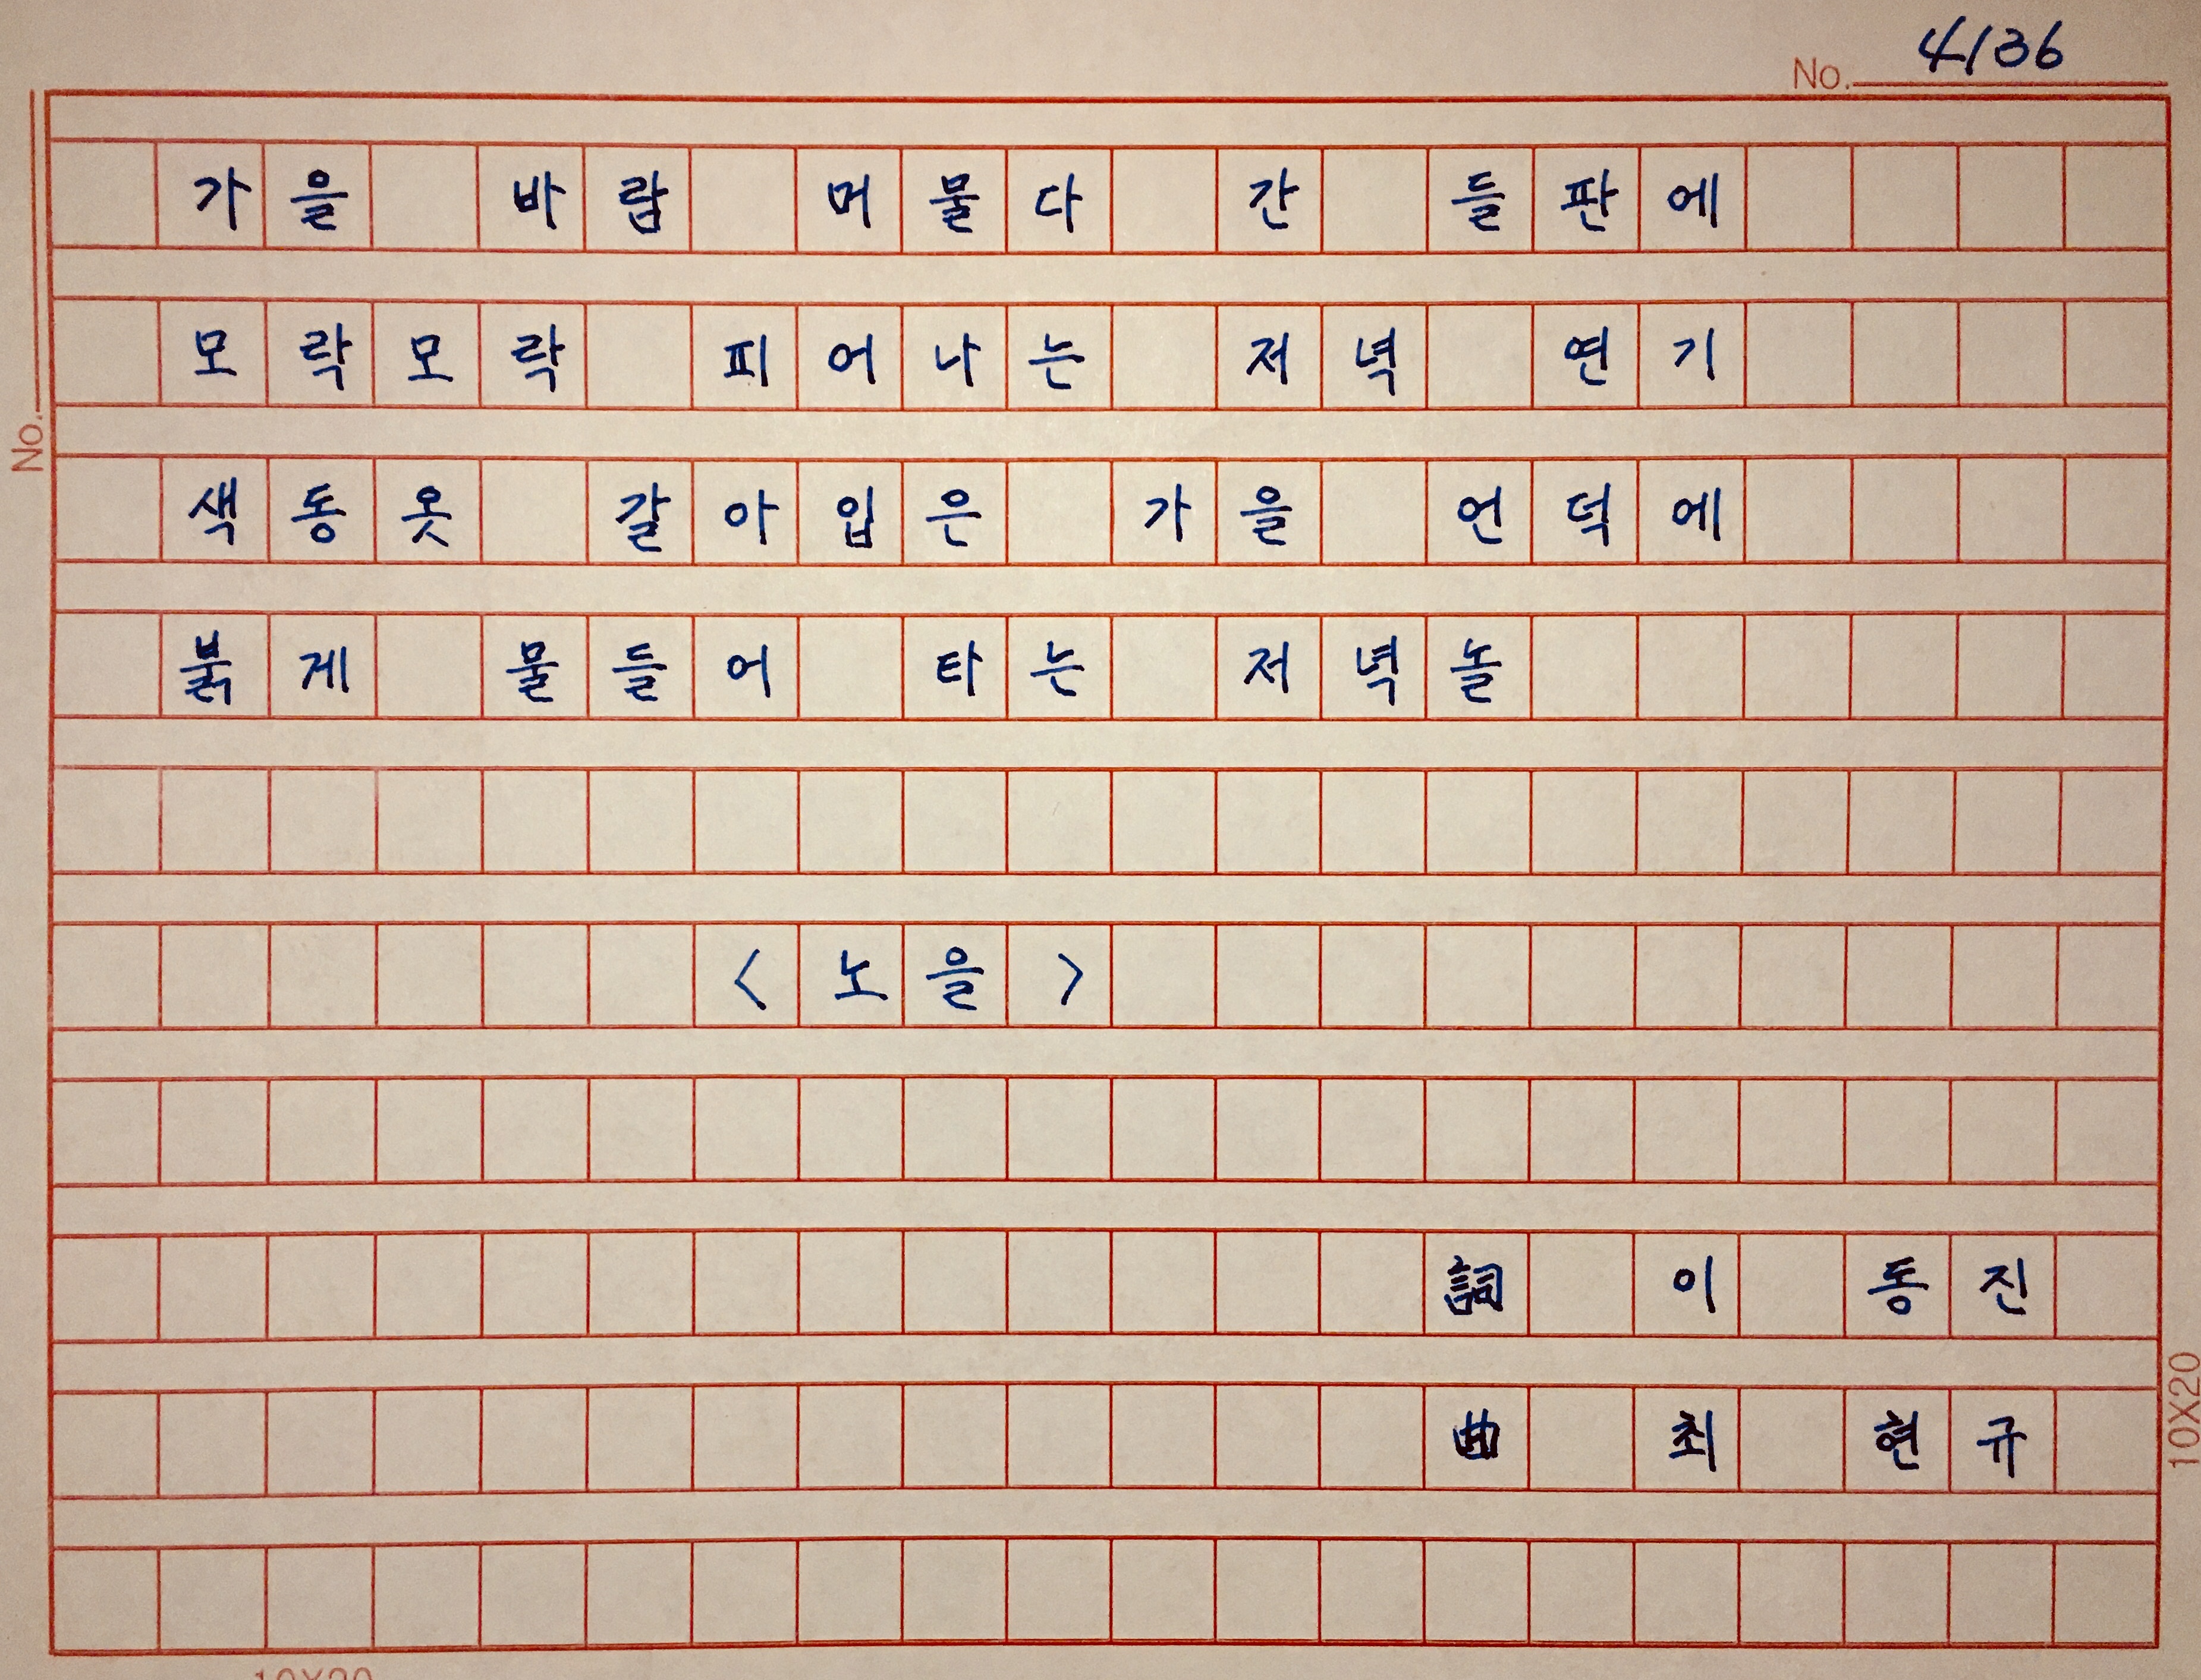 No. 4136
가을 바람 머물다 간 들판에
모락모락 피어나는 저녁 연기
No.
색동옷 갈아입은 가을 언덕에
붉게 물들어 타는 저녁놀
<노을>
詞 이 동진
曲 최 현규
10X20
10X20